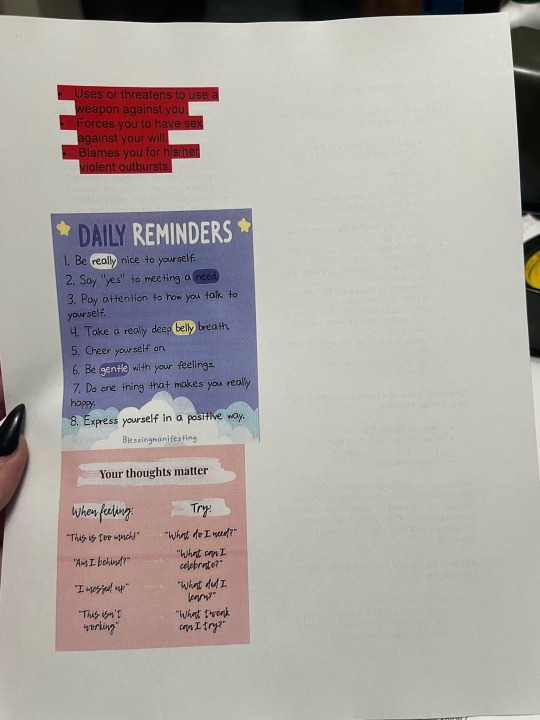 • Uses or threatens to use a
weapon against you.
• Forces you to have sex
against your will.
• Blames you for his/her
violent outbursts.
DAILY REMINDERS
1. Be really nice to yourself.
2. Say "yes" to meeting a need
3. Pay attention to how you talk to
yourself.
4. Take a really deep belly breath.
5. Cheer yourself on
6. Be gentle with your feelings.
7. Do one thing that makes you really
happy.
8. Express yourself in a positive way.
Blessingmanifesting
Your thoughts matter
When feeling: Try:
"This is too much!" "What do I need?"
"Am I behind?" "What can I
celebrate?"
"I messed up" "What did I
learn?"
"This isn't "What tweak
working" can I try?"